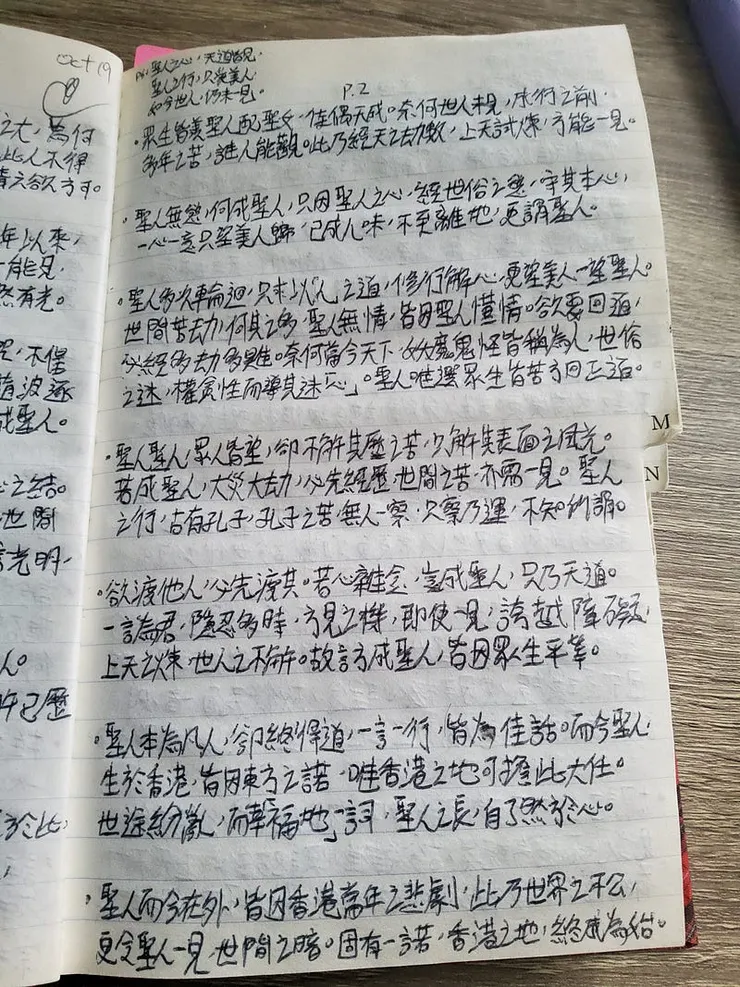 Oct 19
之大,為何
此人不得
情之欲方可。
年以來,
一能見,
然有光。
不懼
隨波逐
成聖人。
心之結。
世間
言光明,
人。
年已歷
於此,
PS: 聖人之心,天道皆見,
聖人之行,只從美人,
如今世人,仍未見。
P.2
·眾生皆羨聖人配聖女,佳偶天成。奈何世人未見,成行之前,
多年之苦,誰人能觀。此乃經天之劫數,上天試煉,方能一見。
·聖人無慾,何成聖人,只因聖人之心,經世俗之慾,守其本心,
一心一意只望美人歸,已成人味,不更離地,更謂聖人。
·聖人多次輪迴,只求以「人」之道,修行解心,更望美人一望聖人。
世間苦劫,何其之多,聖人無情,皆因聖人懂情。欲要回道,
必經多劫多難。奈何當今天下,妖魔鬼怪皆稱為人,世俗
之迷,權貪性而導其迷「心」。聖人唯選眾生皆苦方回正道。
·聖人聖人,眾人皆望,卻不解其歷之苦,只解其表面之風光。
若成聖人,大災大劫,必先經歷,世間之苦,亦需一見。聖人
之行,古有孔子,孔子之苦,無人一察,只察乃運,不知所謂。
·欲渡他人,必先渡其。苦心雜念,豈成聖人,只乃天道。
一諾為君,隱忍多時,方見之機,即使一見,誇越障礙,
上天之煉,世人之不解。故言方成聖人,皆因眾生平等。
·聖人本為凡人,卻終得道,一言一行,皆為佳話。而今聖人,
生於香港,皆因東方之諾,唯香港之地可擔此大任。
世途紛亂,而「華福地」一詞,聖人之長,自了然於心。
·聖人而今在外,皆因香港當年之悲劇,此乃世界之不公,
更令聖人一見,世間之暗。固有一諾,香港之地,終成為始。
M
N